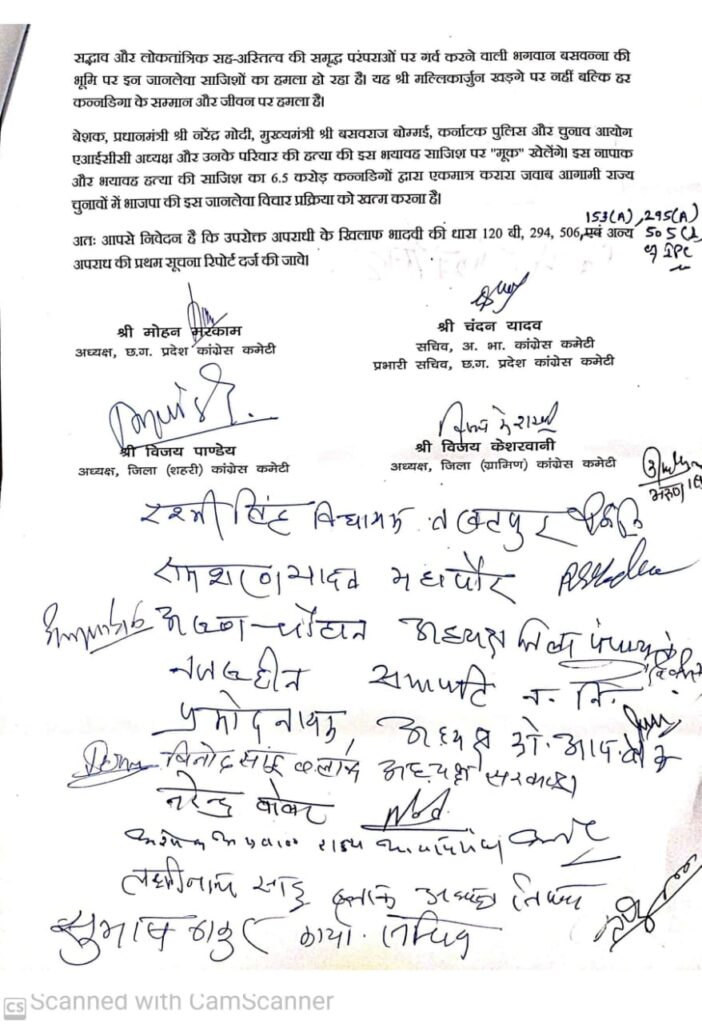 सद्भाव और लोकतांत्रिक सह-अस्तित्व की समृद्ध परंपराओं पर गर्व करने वाली भगवान बसवन्ना की
भूमि पर इन जानलेवा साजिशों का हमला हो रहा है। यह श्री मल्लिकार्जुन खड़गे पर नहीं बल्कि हर
कन्नडिगा के सम्मान और जीवन पर हमला है।
बेशक, प्रधानमंत्री श्री नरेंद्र मोदी, मुख्यमंत्री श्री बसवराज बोम्मई, कर्नाटक पुलिस और चुनाव आयोग
एआईसीसी अध्यक्ष और उनके परिवार की हत्या की इस भयावह साजिश पर "मूक" खेलेंगे। इस नापाक
और भयावह हत्या की साजिश का 6.5 करोड़ कन्नडिगों द्वारा एकमात्र करारा जवाब आगामी राज्य
चुनावों में भाजपा की इस जानलेवा विचार प्रक्रिया को खत्म करना है।
153(A), 295(A)
अतः आपसे निवेदन है कि उपरोक्त अपराधी के खिलाफ भादवी की धारा 120 बी, 294, 506, एवं अन्य 505(
अपराध की प्रथम सूचना रिपोर्ट दर्ज की जावे। of IPC
श्री मोहन मरकाम
अध्यक्ष, छ.ग. प्रदेश कांग्रेस कमेटी
श्री चंदन यादव
सचिव, अ. भा. कांग्रेस कमेटी
प्रभारी सचिव, छ.ग. प्रदेश कांग्रेस कमेटी
श्री विजय पाण्डेय
अध्यक्ष, जिला (शहरी) कांग्रेस कमेटी
श्री विजय केशरवानी
अध्यक्ष, जिला (ग्रामिण) कांग्रेस कमेटी
रश्मी सिंह विधायक तखतपुर
रामशरण यादव महापौर
अरुण चौहान अध्यक्ष जिला पंचायत
सभापति न. नि.
प्रमोद नायक, अध्यक्ष
विनोद साहू ब्लाक अध्यक्ष
नरेन्द्र बोलर
लक्ष्मीनाथ साहू ब्लाक अध्यक्ष
सुभाष ठाकुर कार्या.
CS Scanned with CamScanner